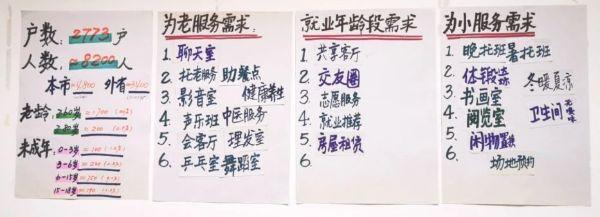 户数：2773户
人数：≈8200人
本市≈4800 外省≈3400
老龄：≥60岁≈1300
≥80岁≈200
未成年：0-3岁
3-6岁
6-15岁
15-18岁
为老服务需求：
1. 聊天室
2. 托老服务 助餐点
3. 影音室 健康养生
4. 声乐班 中医服务
5. 会客厅 理发室
6. 乒乓室 舞蹈室
就业年龄段需求
1. 共享客厅
2. 交友圈
3. 志愿服务
4. 就业推荐
5. 房屋租赁
6.
为小服务需求
1. 晚托班 暑托班
2. 体锻 冬暖夏凉
3. 书画室
4. 阅览室 卫生间
5. 闲物置换
6. 场地预约